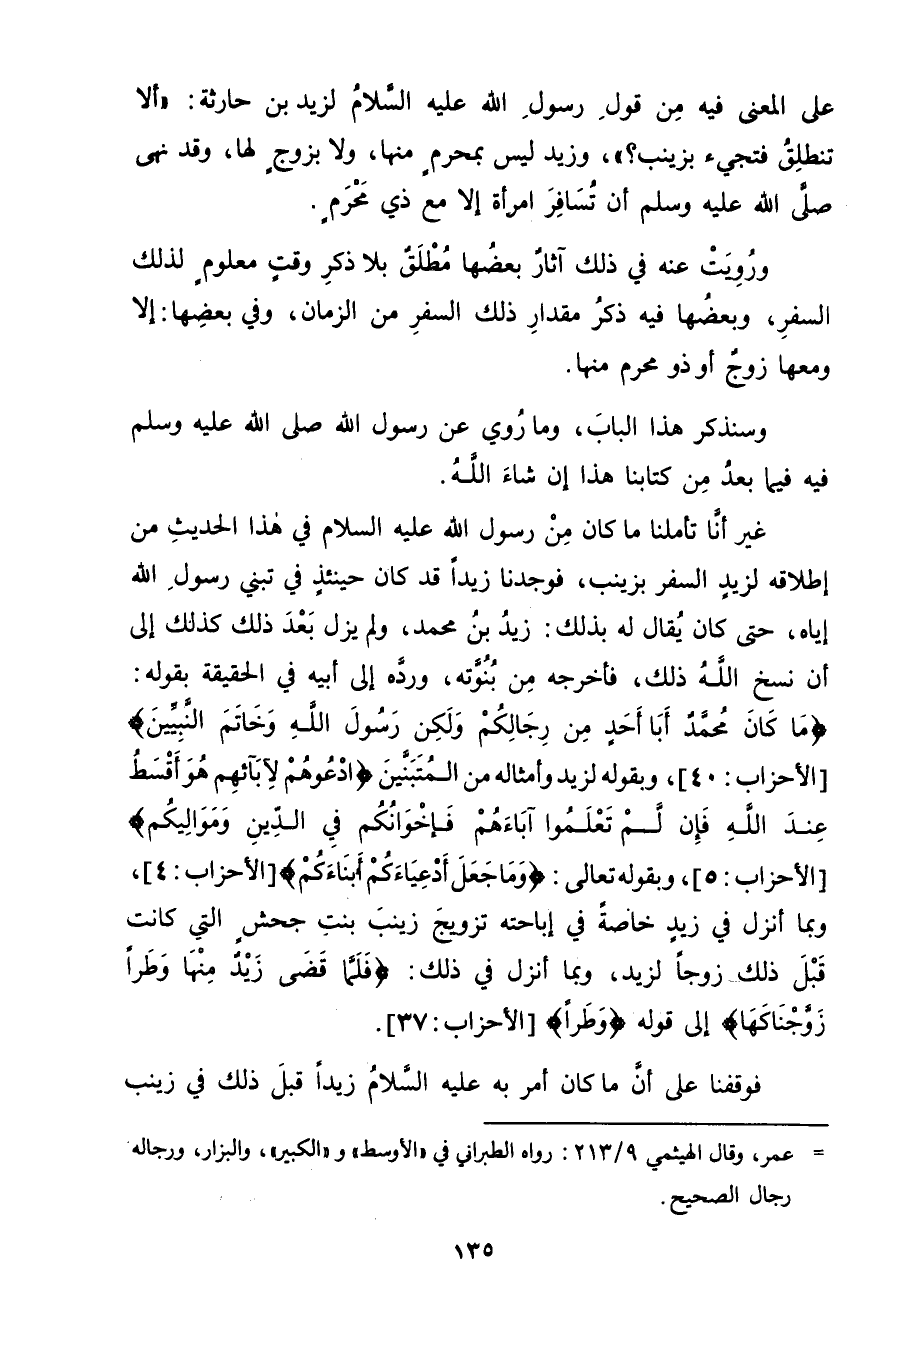 على المعنى فيه مِن قولِ رسولِ الله عليه السَّلامُ لزيد بن حارثة: «ألا
تنطلِقُ فتجيء بزينب؟»، وزيد ليس بمحرمٍ منها، ولا بزوجٍ لها، وقد نهى
صلَّى الله عليه وسلم أن تُسَافِرَ امرأة إلا مع ذي مَحْرَمٍ.
ورُوِيَتْ عنه في ذلك آثارٌ بعضُها مُطْلَقٌ بلا ذكرِ وقتٍ معلومٍ لذلك
السفرِ، وبعضُها فيه ذكرُ مقدارِ ذلك السفرِ من الزمان، وفي بعضِها: إلا
ومعها زوجٌ أو ذو محرم منها.
وسنذكر هذا البابَ، وما رُوي عن رسول الله صلى الله عليه وسلم
فيه فيما بعدُ مِن كتابنا هذا إن شاءَ اللَّهُ.
غير أنَّا تأملنا ما كان مِنْ رسول الله عليه السلام في هٰذا الحديثِ من
إطلاقه لزيدٍ السفر بزينب، فوجدنا زيداً قد كان حينئذٍ في تبني رسولِ الله
إياه، حتى كان يُقال له بذلك: زيدُ بنُ محمد، ولم يزل بَعْدَ ذلك كذلك إلى
أن نسخ اللَّهُ ذلك، فأخرجه مِن بُنُوَّته، وردَّه إلى أبيه في الحقيقة بقوله:
﴿مَا كَانَ مُحمَّدٌ أَبَا أَحَدٍ مِن رِجَالِكُمْ وَلَكِن رَسُولَ اللَّهِ وَخَاتَمَ النَّبِيِّينَ﴾
[الأحزاب: ٤٠]، وبقوله لزيد وأمثاله من المُتَبَنَّينَ ﴿ادْعُوهُمْ لِآبَآئِهِم هُوَ أَقْسَطُ
عِندَ اللَّهِ فَإِن لَّمْ تَعْلَمُوا آبَاءَهُمْ فَإِخْوَانُكُم فِي الدِّينِ وَمَوَالِيكُم﴾
[الأحزاب: ٥]، وبقوله تعالى: ﴿وَمَا جَعَلَ أَدْعِيَاءَكُمْ أَبنَاءَكُمْ﴾ [الأحزاب: ٤]،
وبما أنزل في زيدٍ خاصةً في إباحته تزويجَ زينبَ بنتِ جحشٍ التي كانت
قَبْلَ ذلك زوجاً لزيد، وبما أنزل في ذلك: ﴿فَلَمَّا قَضَى زَيْدٌ مِنْهَا وَطَراً
زَوَّجْنَاكَهَا﴾ إلى قوله ﴿وَطَراً﴾ [الأحزاب: ٣٧].
فوقفنا على أنَّ ما كان أمر به عليه السَّلامُ زيداً قبلَ ذلك في زينب
= عمر، وقال الهيثمي ٢١٣/٩: رواه الطبراني في «الأوسط» و «الكبير»، والبزار، ورجاله
رجال الصحيح.
١٣٥